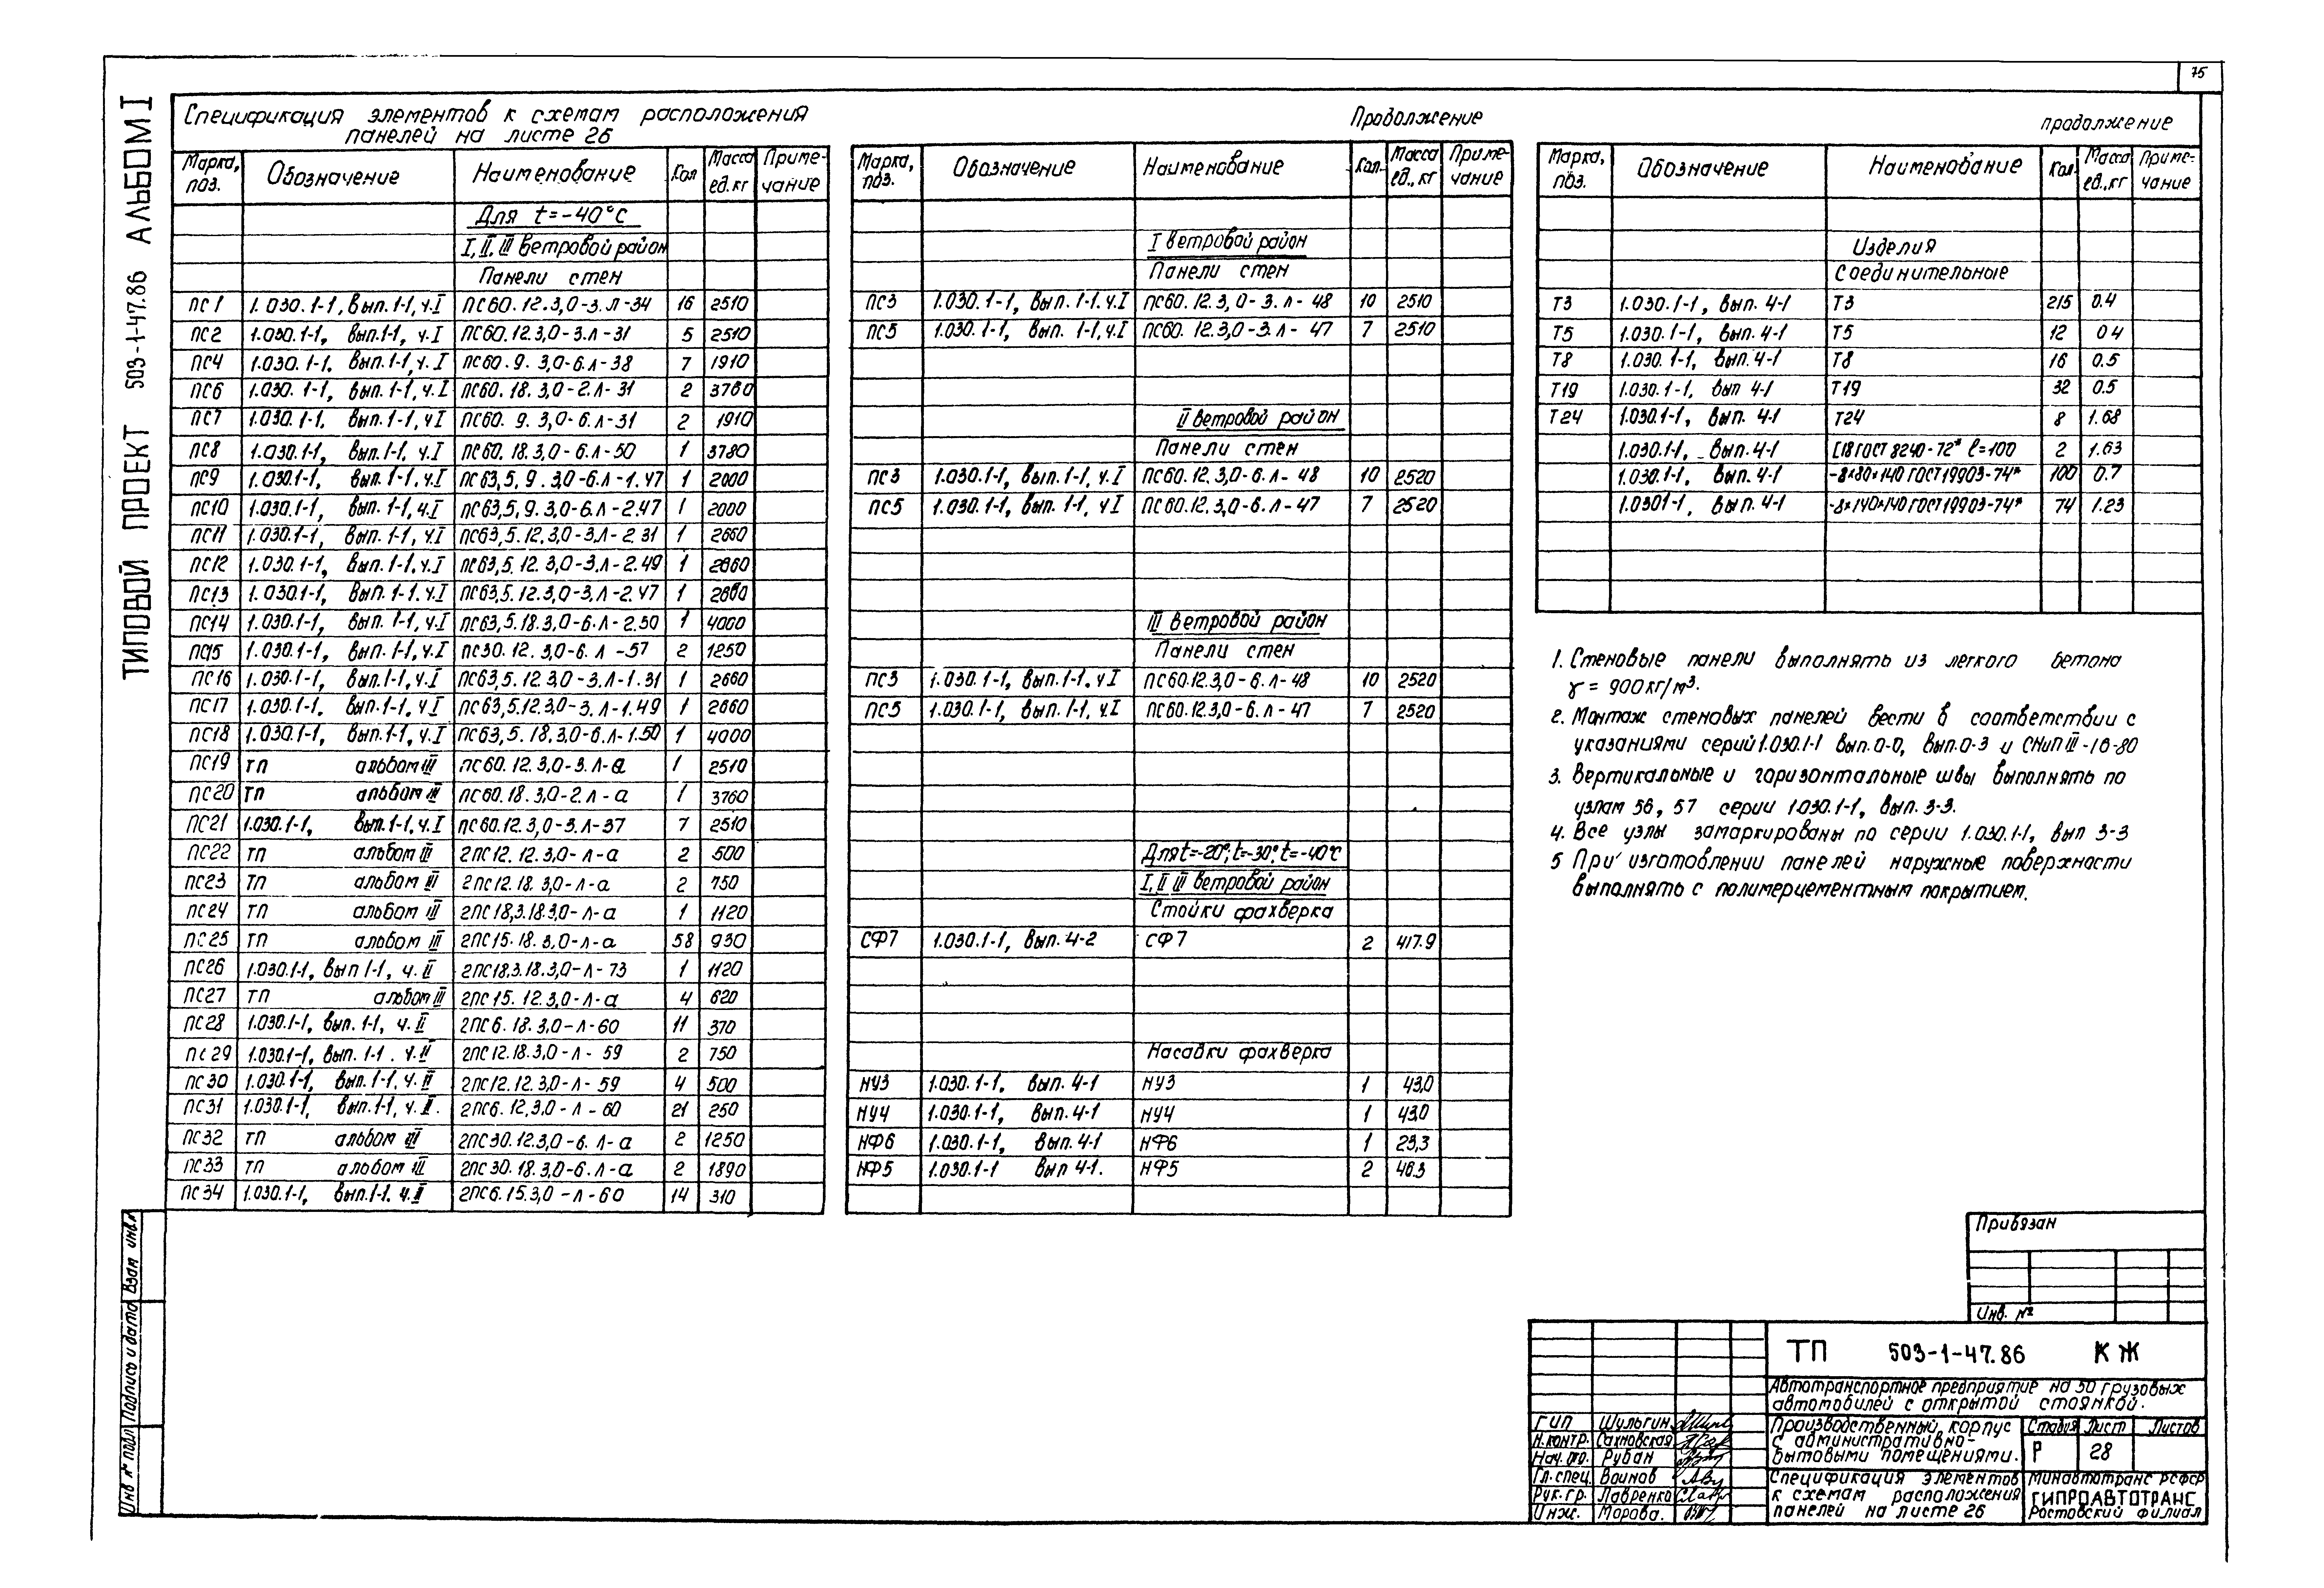 75
ТИПОВОЙ ПРОЕКТ 503-1-47.86 АЛЬБОМ I
Спецификация элементов к схемам расположения
панелей на листе 26
Марка, поз. Обозначение Наименование Кол Масса ед. кг Примечание
Для t=-40°С
I, II, III ветровой район
Панели стен
ПС1 1.030.1-1, вып.1-1, ч.I ПС60.12.3,0-3.л-34 16 2510
ПС2 1.030.1-1, вып.1-1, ч.I ПС60.12.3,0-3.л-31 5 2510
ПС4 1.030.1-1, вып.1-1, ч.I ПС60.9.3,0-6.л-38 7 1910
ПС6 1.030.1-1, вып.1-1, ч.I ПС60.18.3,0-2.л-31 2 3760
ПС7 1.030.1-1, вып.1-1, ч I ПС60.9.3,0-6.л-31 2 1910
ПС8 1.030.1-1, вып.1-1, ч.I ПС60.18.3,0-6.л-50 1 3780
ПС9 1.030.1-1, вып.1-1, ч.I ПС63,5.9.3,0-6.л-1.47 1 2000
ПС10 1.030.1-1, вып.1-1, ч.I ПС63,5.9.3,0-6.л-2.47 1 2000
ПС11 1.030.1-1, вып.1-1, ч.I ПС63,5.12.3,0-3.л-2.31 1 2660
ПС12 1.030.1-1, вып.1-1, ч.I ПС63,5.12.3,0-3.л-2.49 1 2660
ПС13 1.030.1-1, вып.1-1, ч.I ПС63,5.12.3,0-3.л-2.47 1 2660
ПС14 1.030.1-1, вып.1-1, ч.I ПС63,5.18.3,0-6.л-2.50 1 4000
ПС15 1.030.1-1, вып.1-1, ч.I ПС30.12.3,0-6.л-57 2 1250
ПС16 1.030.1-1, вып.1-1, ч.I ПС63,5.12.3,0-3.л-1.31 1 2660
ПС17 1.030.1-1, вып.1-1, ч I ПС63,5.12.3,0-3.л-1.49 1 2660
ПС18 1.030.1-1, вып.1-1, ч.I ПС63,5.18.3,0-6.л-1.50 1 4000
ПС19 ТП альбом III ПС60.12.3,0-3.л-а 1 2510
ПС20 ТП альбом III ПС60.18.3,0-2.л-а 1 3760
ПС21 1.030.1-1, вып.1-1, ч.I ПС60.12.3,0-3.л-37 7 2510
ПС22 ТП альбом III 2ПС12.12.3,0-л-а 2 500
ПС23 ТП альбом III 2ПС12.18.3,0-л-а 2 750
ПС24 ТП альбом III 2ПС18,3.18.3,0-л-а 1 1120
ПС25 ТП альбом III 2ПС15.18.3,0-л-а 58 930
ПС26 1.030.1-1, вып 1-1, ч.II 2ПС18,3.18.3,0-л-73 1 1120
ПС27 ТП альбом III 2ПС15.12.3,0-л-а 4 620
ПС28 1.030.1-1, вып.1-1, ч.II 2ПС6.18.3,0-л-60 11 370
ПС29 1.030.1-1, вып.1-1. ч.II 2ПС12.18.3,0-л-59 2 750
ПС30 1.030.1-1, вып.1-1, ч.II 2ПС12.12.3,0-л-59 4 500
ПС31 1.030.1-1, вып.1-1, ч.II. 2ПС6.12.3,0-л-60 21 250
ПС32 ТП альбом III 2ПС30.12.3,0-6.л-а 2 1250
ПС33 ТП альбом III 2ПС30.18.3,0-6.л-а 2 1890
ПС34 1.030.1-1, вып.1-1. ч.II 2ПС6.15.3,0-л-60 14 310
Продолжение
Марка, поз. Обозначение Наименование Кол. Масса ед., кг Примечание
I ветровой район
Панели стен
ПС3 1.030.1-1, вып.1-1.ч.I ПС60.12.3,0-3.л-48 10 2510
ПС5 1.030.1-1, вып.1-1, ч.I ПС60.12.3,0-3.л-47 7 2510
II ветровой район
Панели стен
ПС3 1.030.1-1, вып.1-1, ч.I ПС60.12.3,0-6.л-48 10 2520
ПС5 1.030.1-1, вып.1-1, ч I ПС60.12.3,0-6.л-47 7 2520
III ветровой район
Панели стен
ПС3 1.030.1-1, вып.1-1. ч I ПС60.12.3,0-6.л-48 10 2520
ПС5 1.030.1-1, вып.1-1, ч.I ПС60.12.3,0-6.л-47 7 2520
Для t=-20°; t=-30°; t=-40°С
I, II III ветровой район
Стойки фахверка
СФ7 1.030.1-1, вып.4-2 СФ7 2 417.9
Насадки фахверка
НУ3 1.030.1-1, вып.4-1 НУ3 1 43,0
НУ4 1.030.1-1, вып.4-1 НУ4 1 43,0
НФ6 1.030.1-1, вып.4-1 НФ6 1 23,3
НФ5 1.030.1-1 вып 4-1. НФ5 2 46.3
продолжение
Марка, поз. Обозначение Наименование Кол. Масса ед., кг Примечание
Изделия
Соединительные
Т3 1.030.1-1, вып.4-1 Т3 215 0.4
Т5 1.030.1-1, вып.4-1 Т5 12 0 4
Т8 1.030.1-1, вып.4-1 Т8 16 0.5
Т19 1.030.1-1, вып 4-1 Т19 32 0.5
Т24 1.030.1-1, вып.4-1 Т24 8 1.68
1.030.1-1, вып.4-1 [18 ГОСТ 8240-72* ℓ=100 2 1.63
1.030.1-1, вып.4-1 -8×80×140 ГОСТ 19903-74* 100 0.7
1.0301-1, вып.4-1 -8×140×140 ГОСТ 19903-74* 74 1.23
1. Стеновые панели выполнять из легкого бетона
γ = 900 кг/м³.
2. Монтаж стеновых панелей вести в соответствии с
указаниями серий 1.030.1-1 вып.0-0, вып.0-3 и СНиП III-16-80
3. Вертикальные и горизонтальные швы выполнять по
узлам 56, 57 серии 1.030.1-1, вып.3-3.
4. Все узлы замаркированы по серии 1.030.1-1, вып 3-3
5 При изготовлении панелей наружные поверхности
выполнять с полимерцементным покрытием.
Привязан
Инв. №
ТП 503-1-47.86 КЖ
Автотранспортное предприятие на 50 грузовых
автомобилей с открытой стоянкой.
Производственный корпус
с административно-
бытовыми помещениями.
Стадия Лист Листов
Р 28
Спецификация элементов
к схемам расположения
панелей на листе 26
Минавтотранс РСФСР
ГИПРОАВТОТРАНС
Ростовский филиал
ГИП Шульгин
Н.контр. Сахновская
Нач. отд. Рубан
Гл.спец. Воинов
Рук.гр. Лавренко
Инж. Морова.
Инв № подл Подпись и дата Взам инв.№